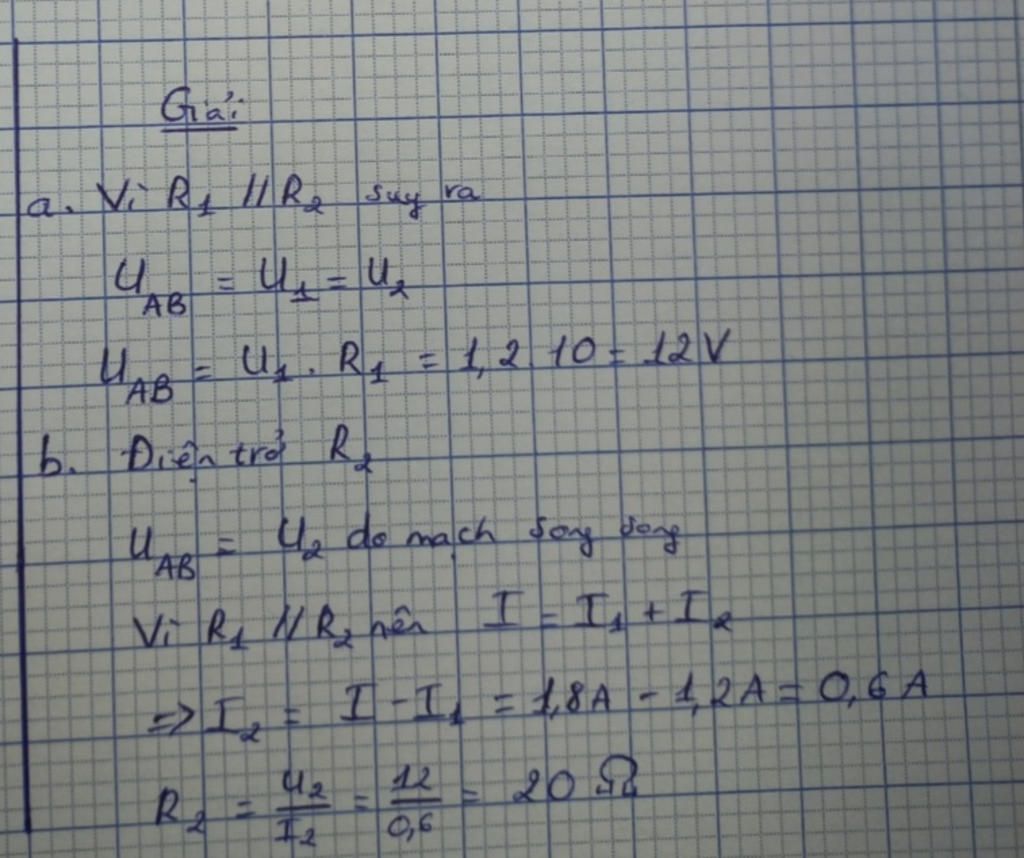 Giải
a. Vì R1 // R2 suy ra
UAB = U1 = U2
UAB = U1. R1 = 1,2 10 = 12 V
b. Điện trở R2
UAB = U2 do mạch song song
Vì R1 // R2 nên I = I1 + I2
=> I2 = I - I1 = 1,8A - 1,2A = 0,6 A
R2 = U2/I2 = 12/0,6 = 20 Ω